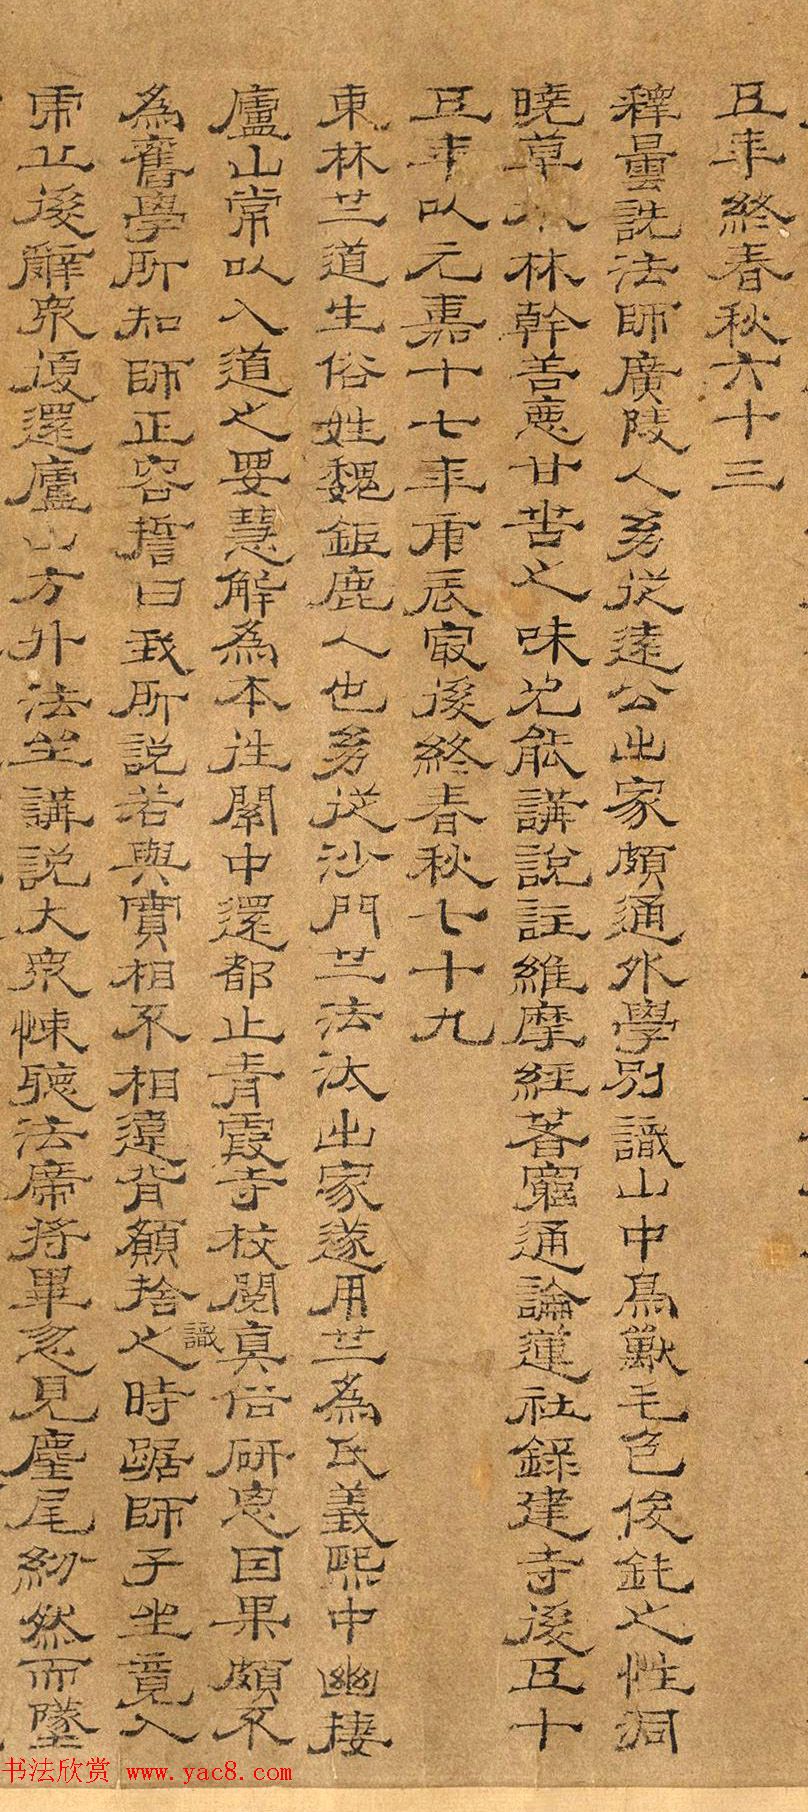 五年終春秋六十三
釋曇詵法師廣陵人㓜從遠公出家頗通外學別識山中鳥獸毛色俊鈍之性洞
曉草木林幹善惡甘苦之味尤能講說註維摩經著窮通論蓮社錄建寺後五十
五年以元嘉十七年庚辰冣後終春秋七十九
東林竺道生俗姓魏鉅鹿人也㓜從沙門竺法汰出家遂用竺為氏義熙中幽棲
廬山常以入道之要慧解為本往關中還都止青霞寺校閱真俗研思因果頗不
為舊學所知師正容誓曰我所說若與實相不相違背願捨之時踞師子坐竟入
識
虎丘後辭衆復還廬山方外法坐講說大衆悚聽法席將畢忽見麈尾紛然而墜
书法欣赏 www.yac8.com